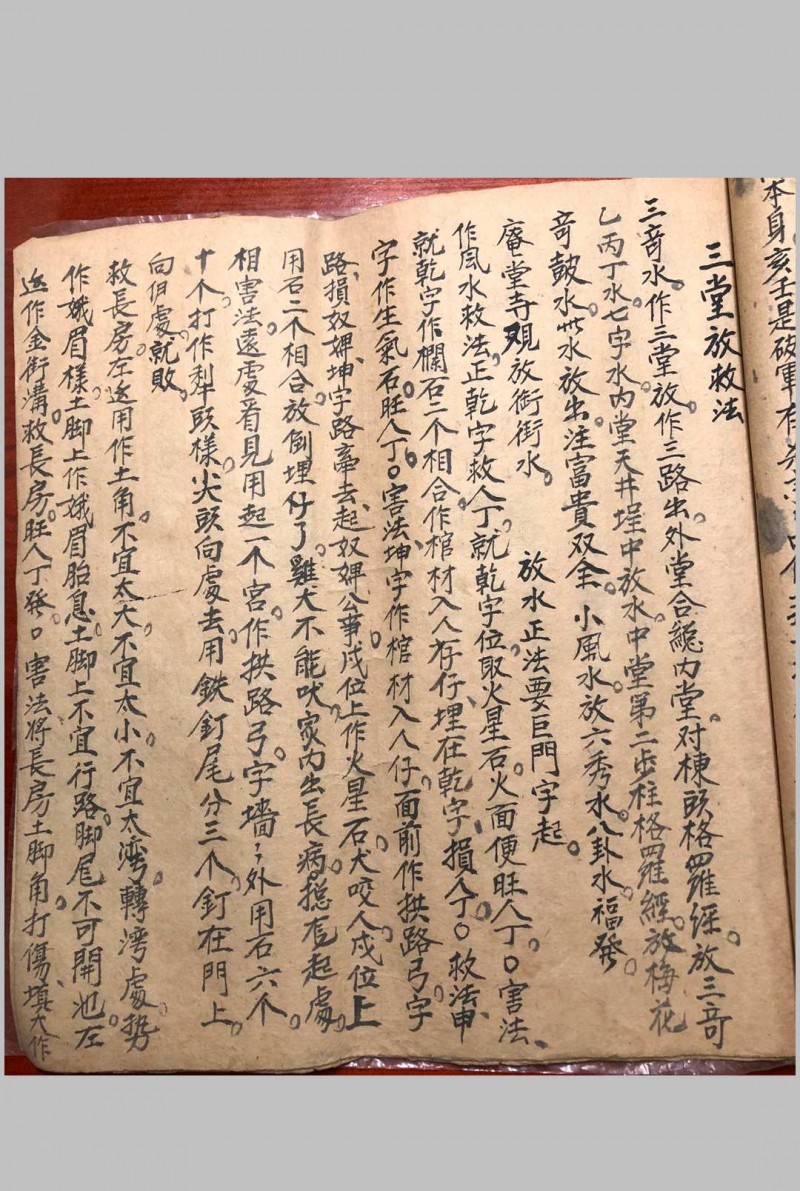 本身亥壬是破軍有
三堂放救法
三竒水。作三堂放。作三路出。外堂合總内堂。对棟頭格羅經。放三竒
乙丙丁水。七字水内堂天井埕中放水。中堂第二步柱格羅經。放梅花
竒皷水。此水放出。注富貴双全。小風水放六秀水。八卦水。福發。
庵堂寺观放衙街水。 放水正法要巨門字起。
作風水救法。正乾字救人丁。就乾字位取火星石。火面便旺人丁。○害法、
就乾字作欄石二个相合。作棺材入人存仔。埋在乾字、損人丁。○救法申
字作生氣石。旺人丁。○害法、坤字作棺材入人仔。面前作拱路弓字
路、損奴婢、坤字路帝去、起奴婢公事。戌位上作火星石。犬咬人。戌位上
用石二个相合。放倒埋仔了。雞犬不能吠。家内出長病。摠在起處。
相害法。遠處看見用起一个宮。作拱路弓。字墻ミ外用石六个。
十个打作犁頭樣。尖頭向處去。用鉄釘尾分三个。釘在門上。
向伊處。就敗。
救長房。左迄用作土角。不宜太大。不宜太小。不宜太湾。轉湾處勢
作娥眉樣。土脚上作娥眉胎息。土脚上不宜行路。脚尾不可開池。左
迄作金街溝。救長房。旺人丁發。○害法将長房土脚角。打傷、填大作